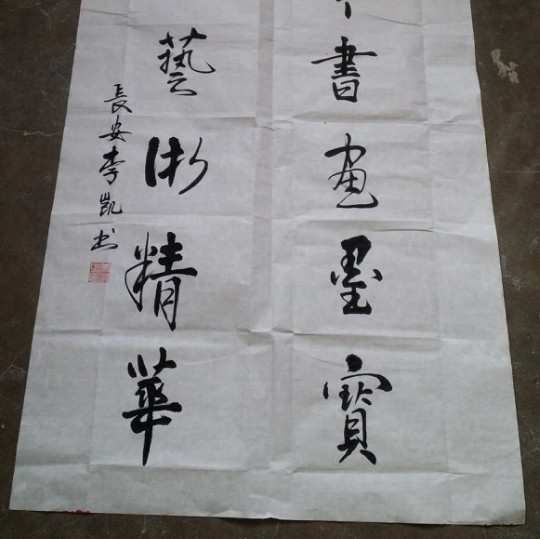 書畫墨寶
藝術精華
長安李凱书